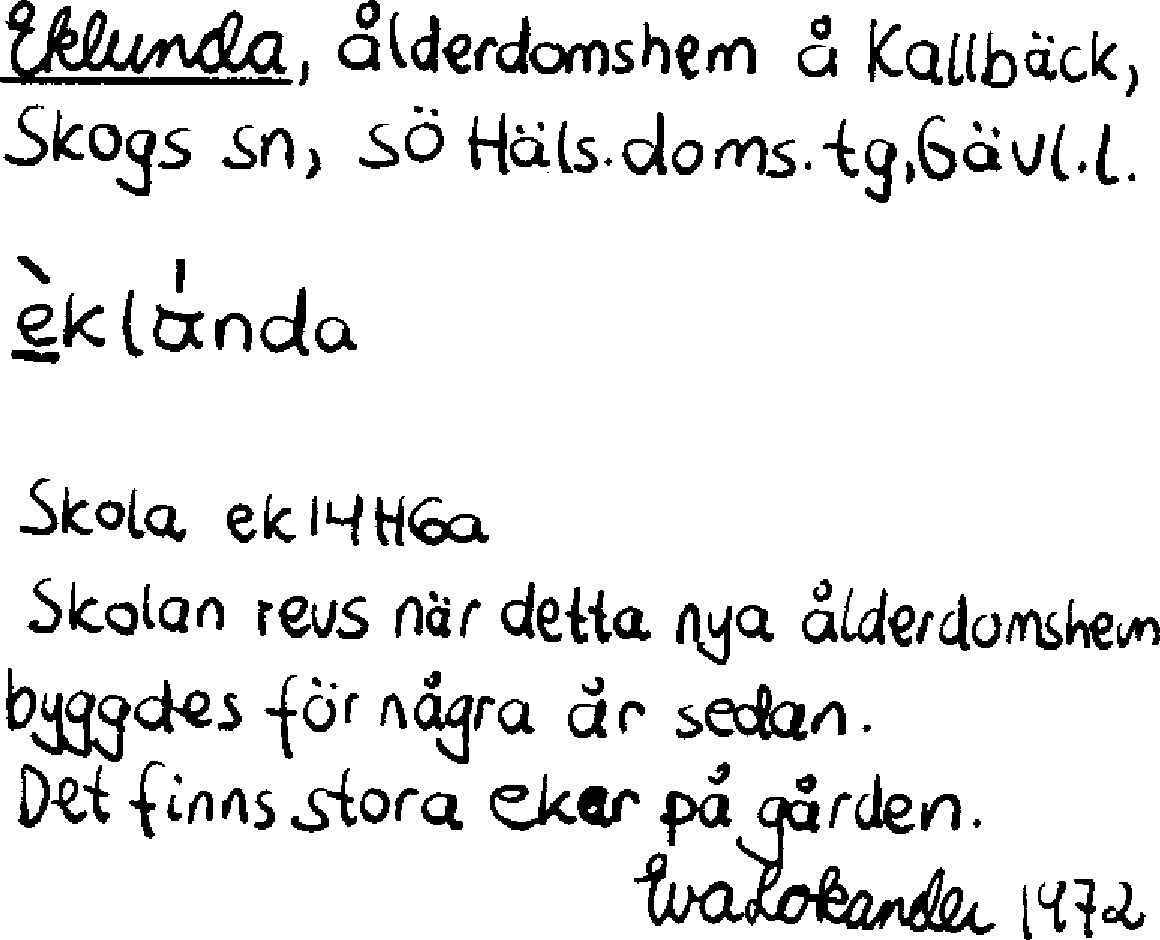 Eklunda, ålderdomshem å Kallbäck,
Skogs sn, SÖ Häls.doms.tg, Gävl.l.
èklánda
Skola ek 14H6a
Skolan revs när detta nya ålderdomshem
byggdes för några år sedan.
Det finns stora ekar på gården.
Eva Lokander 1972